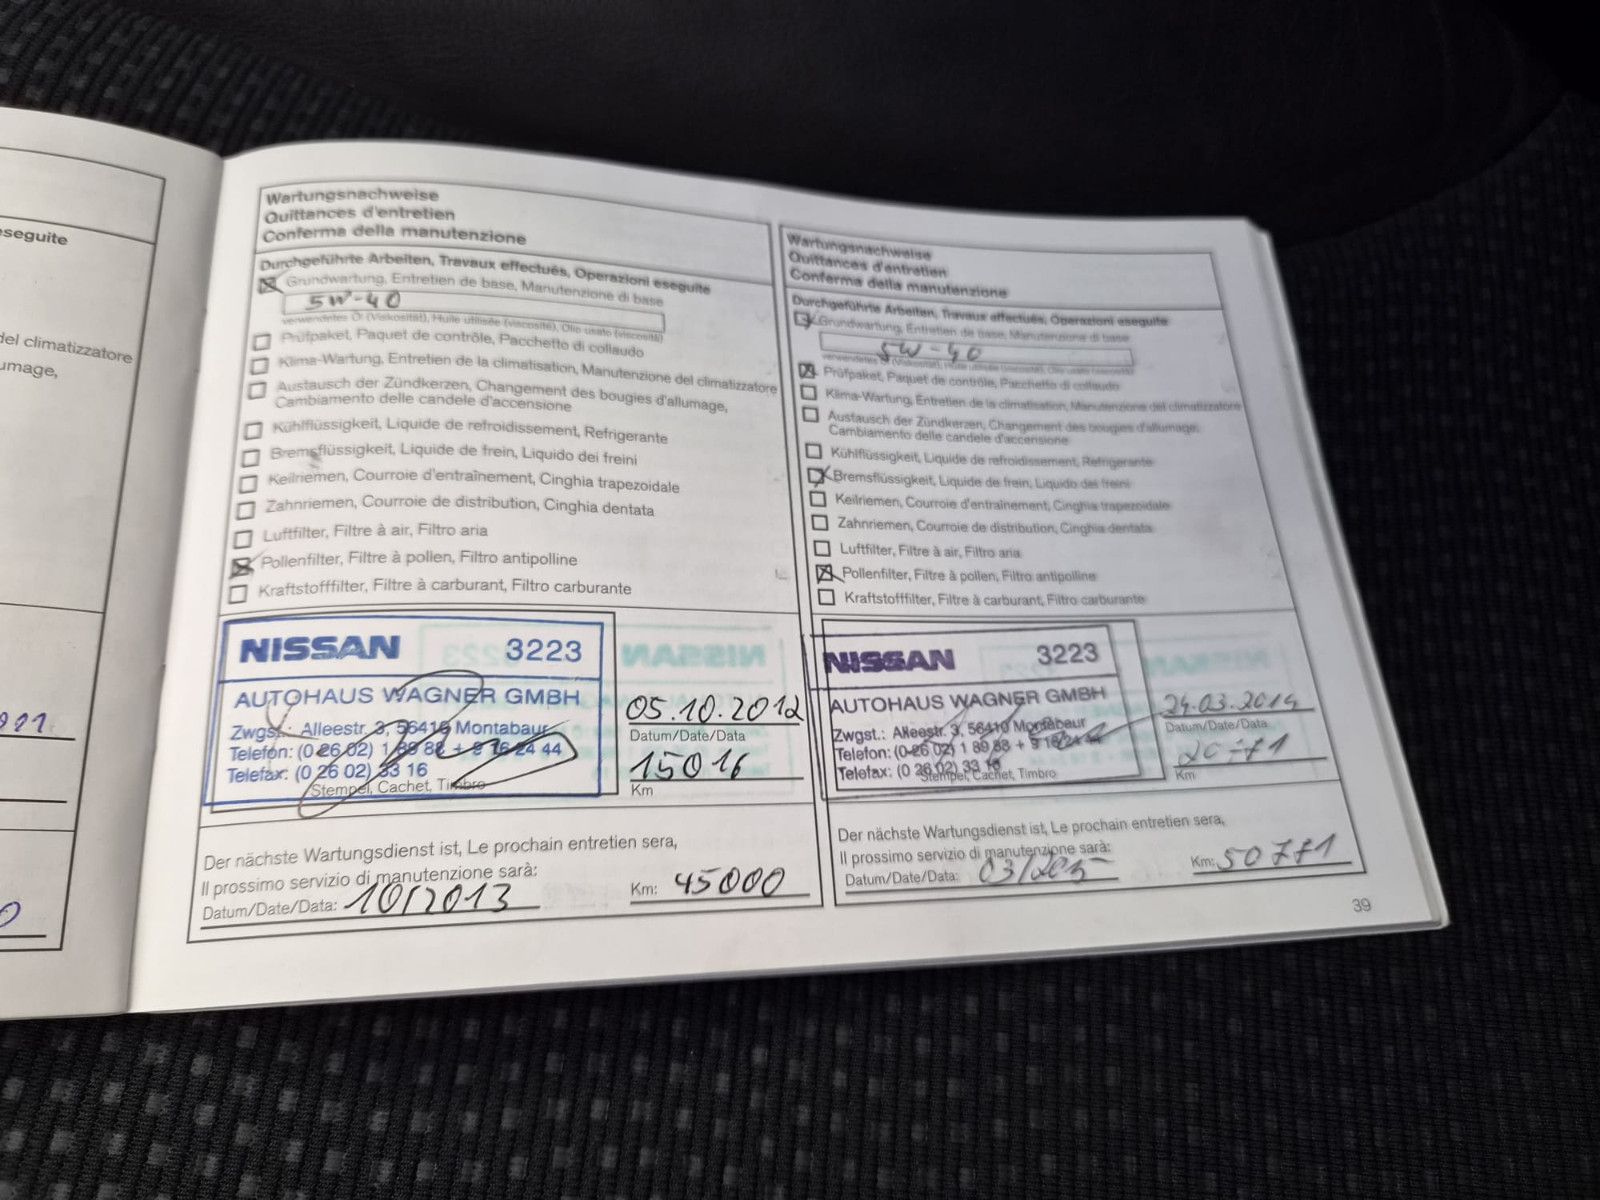 eseguite
del climatizzatore
umage,
Wartungsnachweise
Quittances d'entretien
Conferma della manutenzione
Durchgeführte Arbeiten, Travaux effectués, Operazioni eseguite
Grundwartung, Entretien de base, Manutenzione di base
5W-40
verwendetes Öl (Viskosität), Huile utilisée (viscosité), Olio usato (viscosità)
Prüfpaket, Paquet de contrôle, Pacchetto di collaudo
Klima-Wartung, Entretien de la climatisation, Manutenzione del climatizzatore
Austausch der Zündkerzen, Changement des bougies d'allumage,
Cambiamento delle candele d'accensione
Kühlflüssigkeit, Liquide de refroidissement, Refrigerante
Bremsflüssigkeit, Liquide de frein, Liquido dei freini
Keilriemen, Courroie d'entraînement, Cinghia trapezoidale
Zahnriemen, Courroie de distribution, Cinghia dentata
Luftfilter, Filtre à air, Filtro aria
Pollenfilter, Filtre à pollen, Filtro antipolline
Kraftstofffilter, Filtre à carburant, Filtro carburante
NISSAN 3223
AUTOHAUS WAGNER GMBH
Zwgst.: Alleestr. 3, 56410 Montabaur
Telefon: (0 26 02) 1 89 88 + 9 16 24 44
Telefax: (0 26 02) 33 16
Stempel, Cachet, Timbro
05.10.2012
Datum/Date/Data
15016
Km
Der nächste Wartungsdienst ist, Le prochain entretien sera,
Il prossimo servizio di manutenzione sarà:
Datum/Date/Data: 10/2013 Km: 45000
Wartungsnachweise
Quittances d'entretien
Conferma della manutenzione
Durchgeführte Arbeiten, Travaux effectués, Operazioni eseguite
Grundwartung, Entretien de base, Manutenzione di base
5W-40
verwendetes Öl (Viskosität), Huile utilisée (viscosité), Olio usato (viscosità)
Prüfpaket, Paquet de contrôle, Pacchetto di collaudo
Klima-Wartung, Entretien de la climatisation, Manutenzione del climatizzatore
Austausch der Zündkerzen, Changement des bougies d'allumage,
Cambiamento delle candele d'accensione
Kühlflüssigkeit, Liquide de refroidissement, Refrigerante
Bremsflüssigkeit, Liquide de frein, Liquido dei freini
Keilriemen, Courroie d'entraînement, Cinghia trapezoidale
Zahnriemen, Courroie de distribution, Cinghia dentata
Luftfilter, Filtre à air, Filtro aria
Pollenfilter, Filtre à pollen, Filtro antipolline
Kraftstofffilter, Filtre à carburant, Filtro carburante
NISSAN 3223
AUTOHAUS WAGNER GMBH
Zwgst.: Alleestr. 3, 56410 Montabaur
Telefon: (0 26 02) 1 89 88 + 9 16 24 44
Telefax: (0 26 02) 33 16
Stempel, Cachet, Timbro
24.03.2014
Datum/Date/Data
20771
Km
Der nächste Wartungsdienst ist, Le prochain entretien sera,
Il prossimo servizio di manutenzione sarà:
Datum/Date/Data: Km: 50771
39